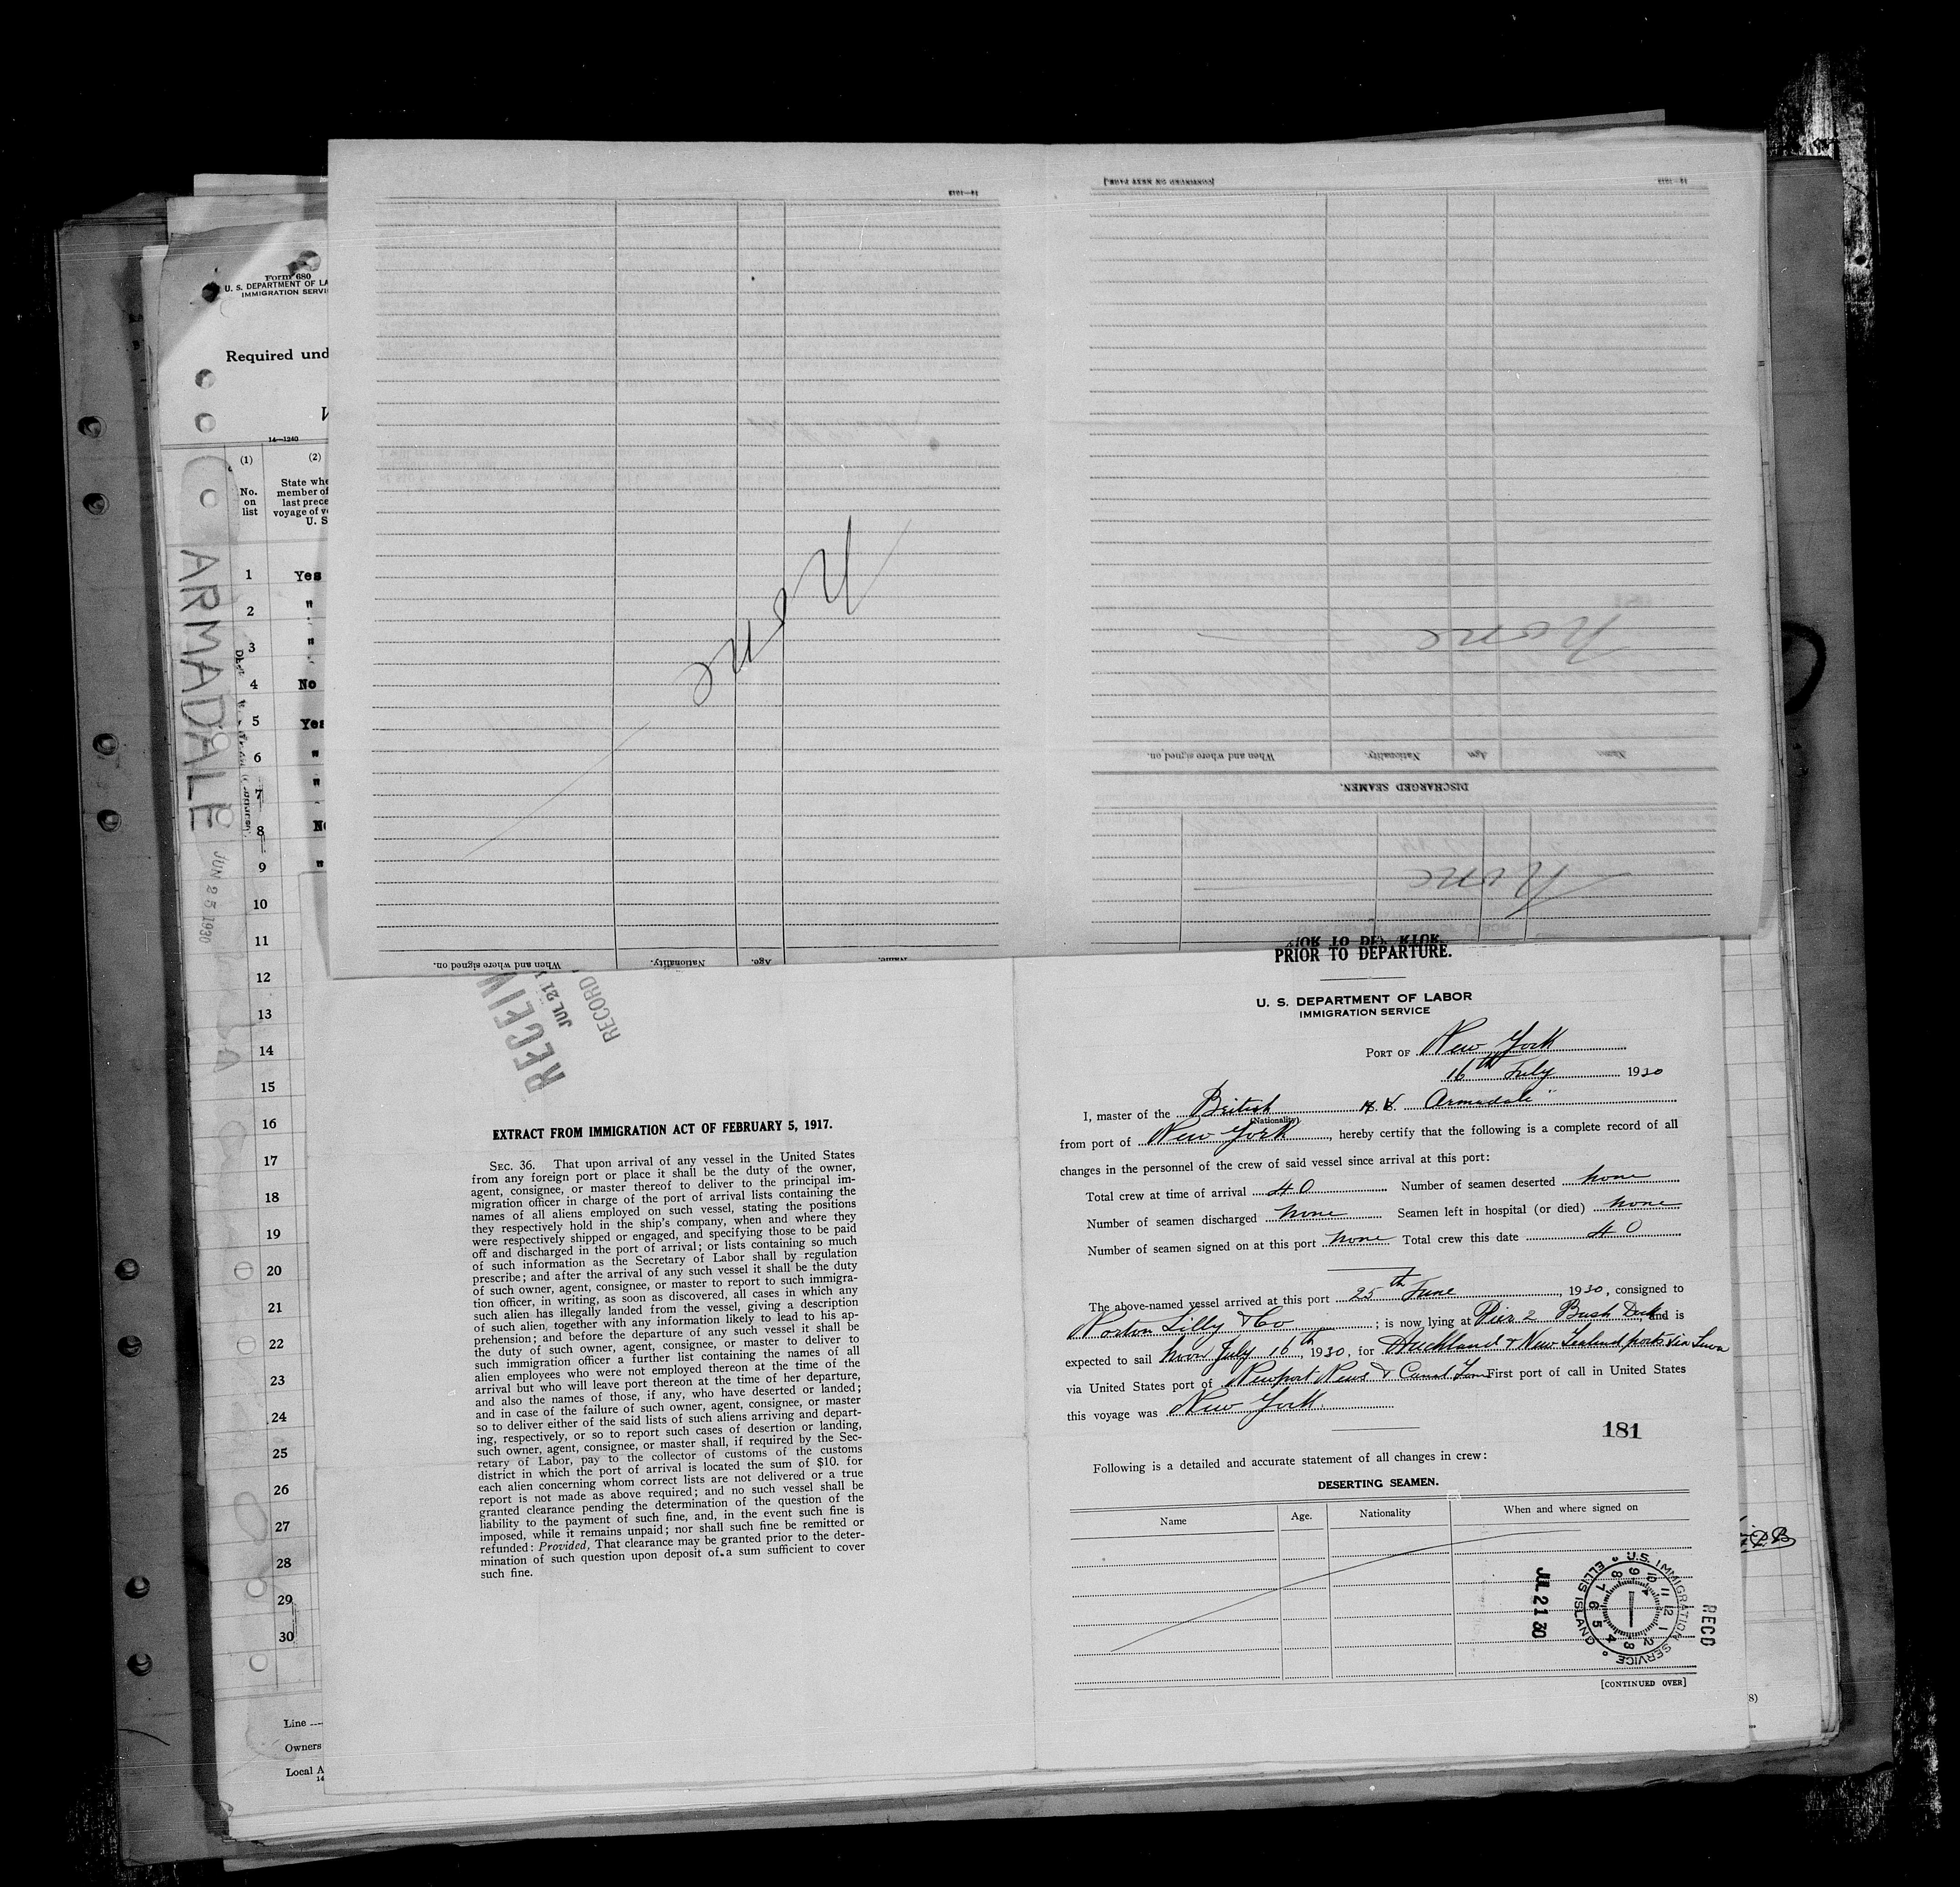 14—1213
[CONTINUED ON NEXT PAGE.]
14—1213
None
None
Name.
Age.
Nationality.
When and where signed on.
DISCHARGED SEAMEN.
None
Name.
Age.
Nationality.
When and where signed on.
Form 680
U. S. DEPARTMENT OF LA
IMMIGRATION SERVI
Required und
14—1240
(1)
(2)
No.
on
list
State whe
member of
last prece
voyage of v
U. S
ARMADALE
JUN 25 1930
1 Yes
2 "
3 "
4 No
5 Yes
6 "
7 "
8 No
9 "
10
11
12
13
14
15
16
17
18
19
20
21
22
23
24
25
26
27
28
29
30
Line
Owners
Local A
14
RECEIV
JUL 21
RECORD
EXTRACT FROM IMMIGRATION ACT OF FEBRUARY 5, 1917.
SEC. 36. That upon arrival of any vessel in the United States
from any foreign port or place it shall be the duty of the owner,
agent, consignee, or master thereof to deliver to the principal im-
migration officer in charge of the port of arrival lists containing the
names of all aliens employed on such vessel, stating the positions
they respectively hold in the ship's company, when and where they
were respectively shipped or engaged, and specifying those to be paid
off and discharged in the port of arrival; or lists containing so much
of such information as the Secretary of Labor shall by regulation
prescribe; and after the arrival of any such vessel it shall be the duty
of such owner, agent, consignee, or master to report to such immigra-
tion officer, in writing, as soon as discovered, all cases in which any
such alien has illegally landed from the vessel, giving a description
of such alien, together with any information likely to lead to his ap-
prehension; and before the departure of any such vessel it shall be
the duty of such owner, agent, consignee, or master to deliver to
such immigration officer a further list containing the names of all
alien employees who were not employed thereon at the time of the
arrival but who will leave port thereon at the time of her departure,
and also the names of those, if any, who have deserted or landed;
and in case of the failure of such owner, agent, consignee, or master
so to deliver either of the said lists of such aliens arriving and depart-
ing, respectively, or so to report such cases of desertion or landing,
such owner, agent, consignee, or master shall, if required by the Sec-
retary of Labor, pay to the collector of customs of the customs
district in which the port of arrival is located the sum of $10. for
each alien concerning whom correct lists are not delivered or a true
report is not made as above required; and no such vessel shall be
granted clearance pending the determination of the question of the
liability to the payment of such fine, and, in the event such fine is
imposed, while it remains unpaid; nor shall such fine be remitted or
refunded: Provided, That clearance may be granted prior to the deter-
mination of such question upon deposit of a sum sufficient to cover
such fine.
PRIOR TO DEPARTURE.
U. S. DEPARTMENT OF LABOR
IMMIGRATION SERVICE
PORT OF New York
16th July 1930
I, master of the British Armadale
(Nationality)
from port of New York, hereby certify that the following is a complete record of all
changes in the personnel of the crew of said vessel since arrival at this port:
Total crew at time of arrival 40 Number of seamen deserted none
Number of seamen discharged none Seamen left in hospital (or died) none
Number of seamen signed on at this port none Total crew this date 40
The above-named vessel arrived at this port 25th June, 1930, consigned to
Norton Lilly & Co; is now lying at Pier 2 Bush Dock and is
expected to sail noon July 16th, 1930, for Auckland & New Zealand ports via Suva
via United States port of Newport News & Canal Zone First port of call in United States
this voyage was New York.
181
Following is a detailed and accurate statement of all changes in crew:
DESERTING SEAMEN.
Name Age. Nationality When and where signed on
JUL 21 30
U.S. IMMIGRATION SERVICE
ELLIS ISLAND
RECD
[CONTINUED OVER]